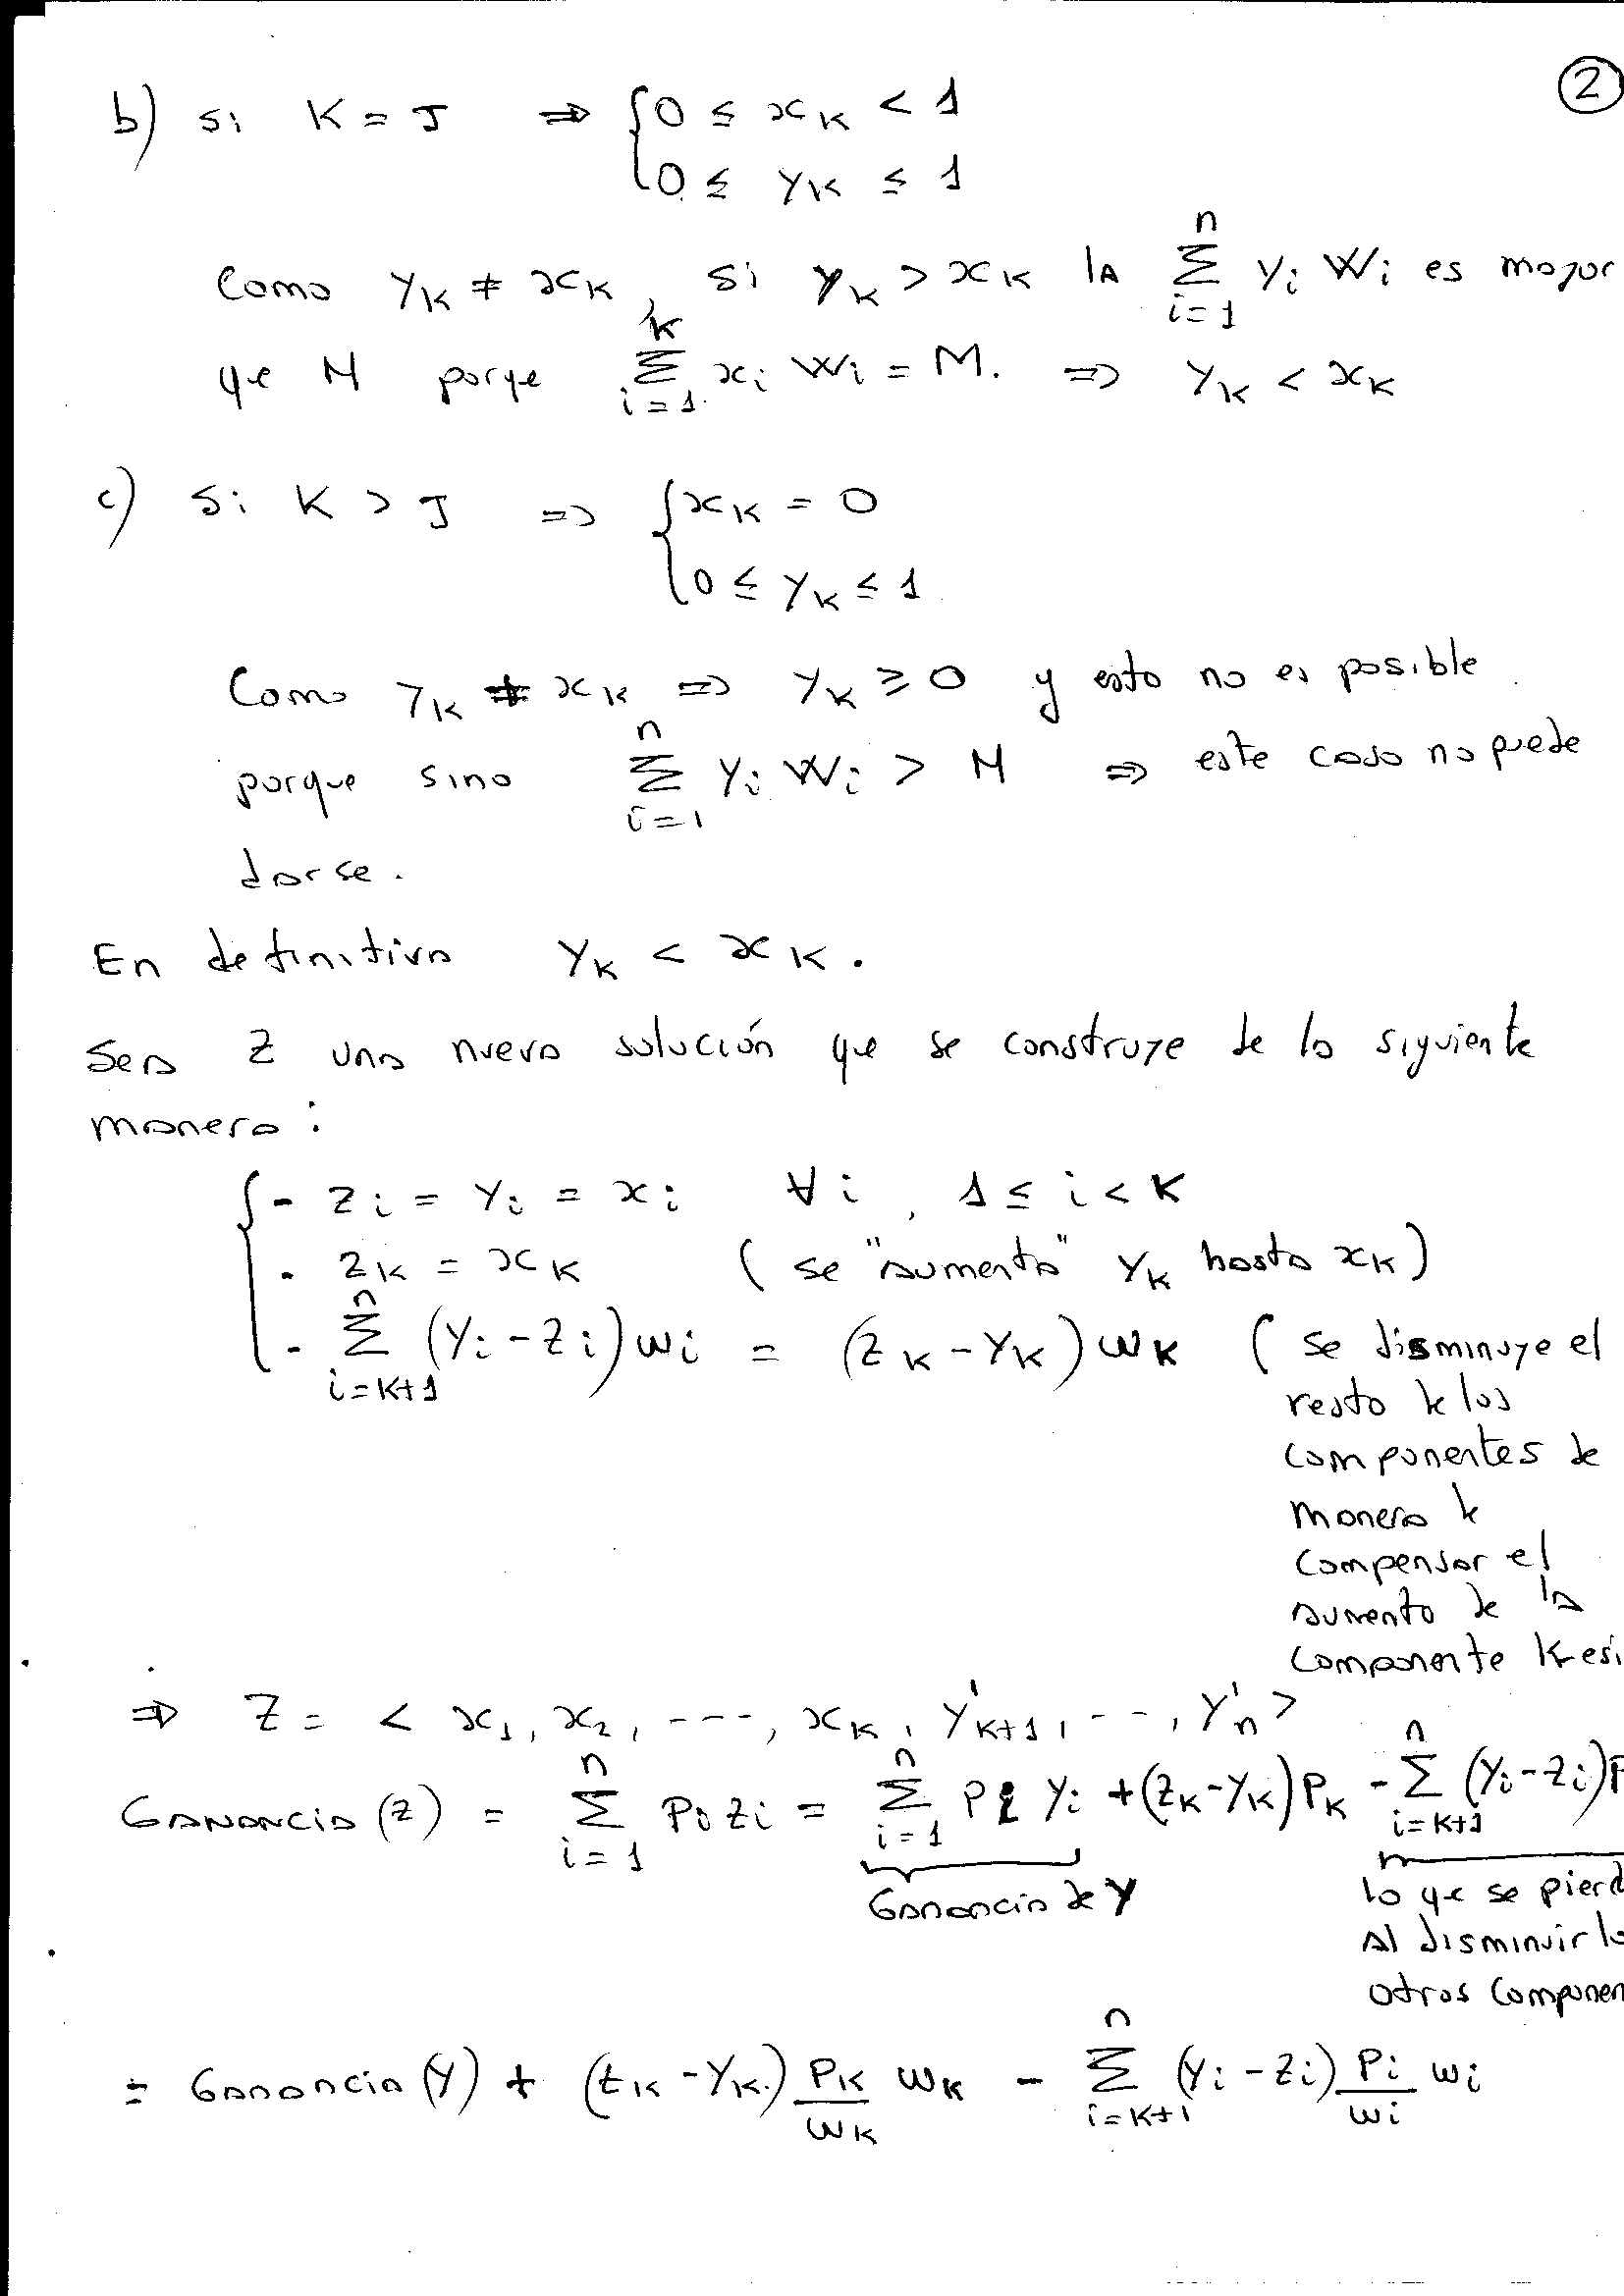 2
b) Si K = J ⇒ { 0 ≤ x_K < 1
0 ≤ y_K ≤ 1
Como y_K ≠ x_K, si y_K > x_K la ∑_{i=1}^{n} y_i w_i es mayor
que M porqe ∑_{i=1}^{k} x_i w_i = M. ⇒ y_K < x_K
c) Si K > J ⇒ { x_K = 0
0 ≤ y_K ≤ 1
Como y_K ≠ x_K ⇒ y_K ≥ 0 y esto no es posible
porque sino ∑_{i=1}^{n} y_i w_i > M ⇒ este caso no puede
darse.
En definitiva y_K < x_K.
Sea z una nueva solución que se construye de la siguiente
manera:
{ - z_i = y_i = x_i ∀i, 1 ≤ i < K
- z_K = x_K (se "aumenta" y_K hasta x_K)
- ∑_{i=K+1}^{n} (y_i - z_i) w_i = (z_K - y_K) w_K (se disminuye el
resto de los
componentes de
manera de
compensar el
aumento de la
componente K-esi
⇒ Z = < x_1, x_2, ---, x_K, y'_{K+1}, --, y'_n >
Ganancia (z) = ∑_{i=1}^{n} p_i z_i = ∑_{i=1}^{n} p_i y_i + (z_K - y_K) p_K - ∑_{i=K+1}^{n} (y_i - z_i) p
Ganancia de y
lo que se pierd
al disminuir lo
otras componen
= Ganancia (y) + (z_K - y_K) p_K/w_K w_K - ∑_{i=K+1}^{n} (y_i - z_i) p_i/w_i w_i